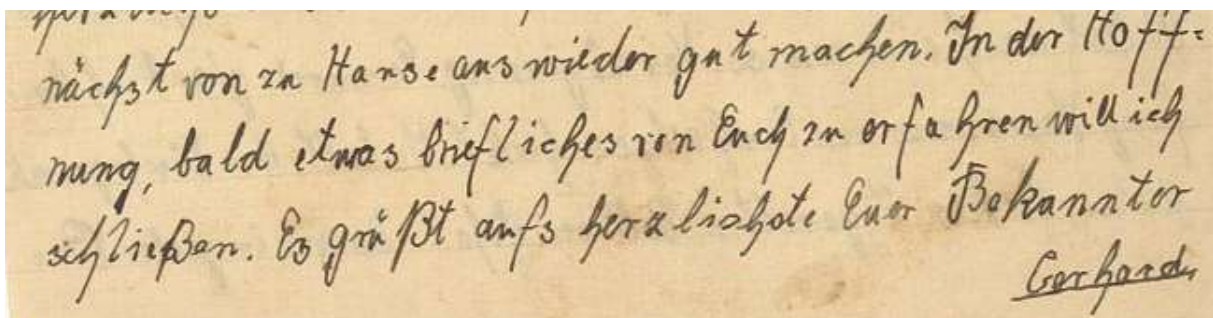 nächst von zu Hause aus wieder gut machen. In der Hoff-
nung, bald etwas briefliches von Euch zu erfahren will ich
schließen. Es grüßt aufs herzlichste Euer Bekannter
Gerhard